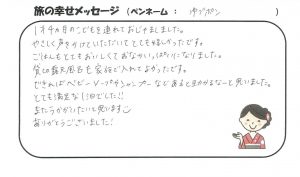 旅の幸せメッセージ（ペンネーム： ゆづポン ）
1才4ヵ月のこどもを連れておじゃましました。
やさしく声をかけていただいてとてもうれしかったです。
ごはんもとてもおいしくておなかいっぱいになりました。
貸切露天風呂も家族で入れてよかったです。
できればベビーソープやシャンプーなどあると助かるなーと思いました。
とても満足な1泊でした!!
またうかがいたいと思います
ありがとうございました!